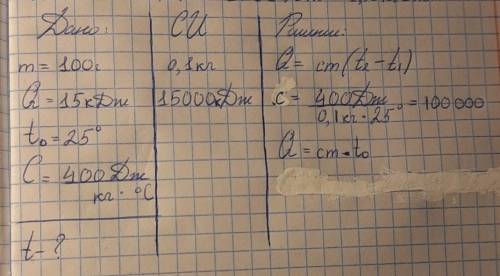 Дано:
m = 100г
Q = 15кДж
t₀ = 25°
C = 400Дж
кг · °С
t - ?
СИ
0,1кг
15000кДж
Решение:
Q = cm(t₂ - t₁)
c = 400Дж = 100000
0,1кг · 25°
Q = cm · t₀